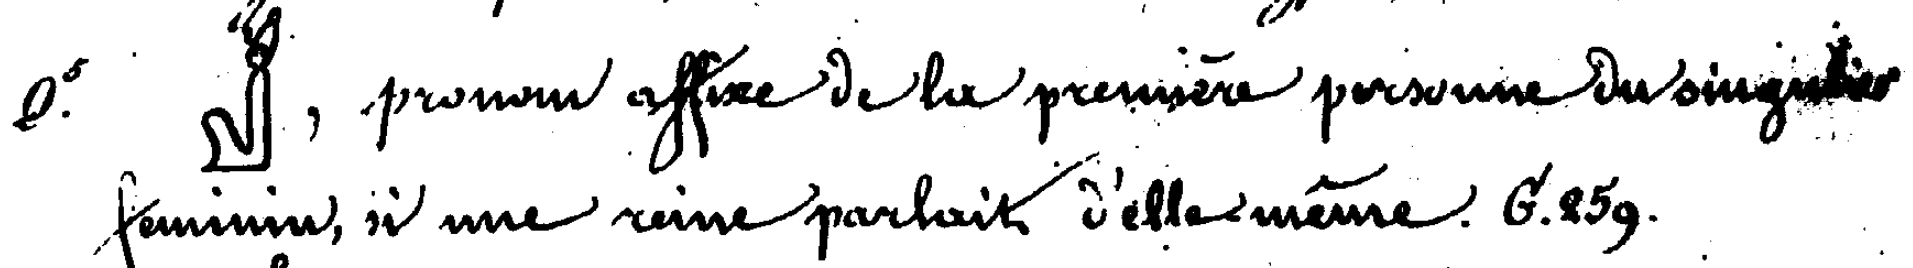 D.⁵ , pronom affixe de la première personne du singulier
feminin, si une reine parlait d'elle-même. G. 259.